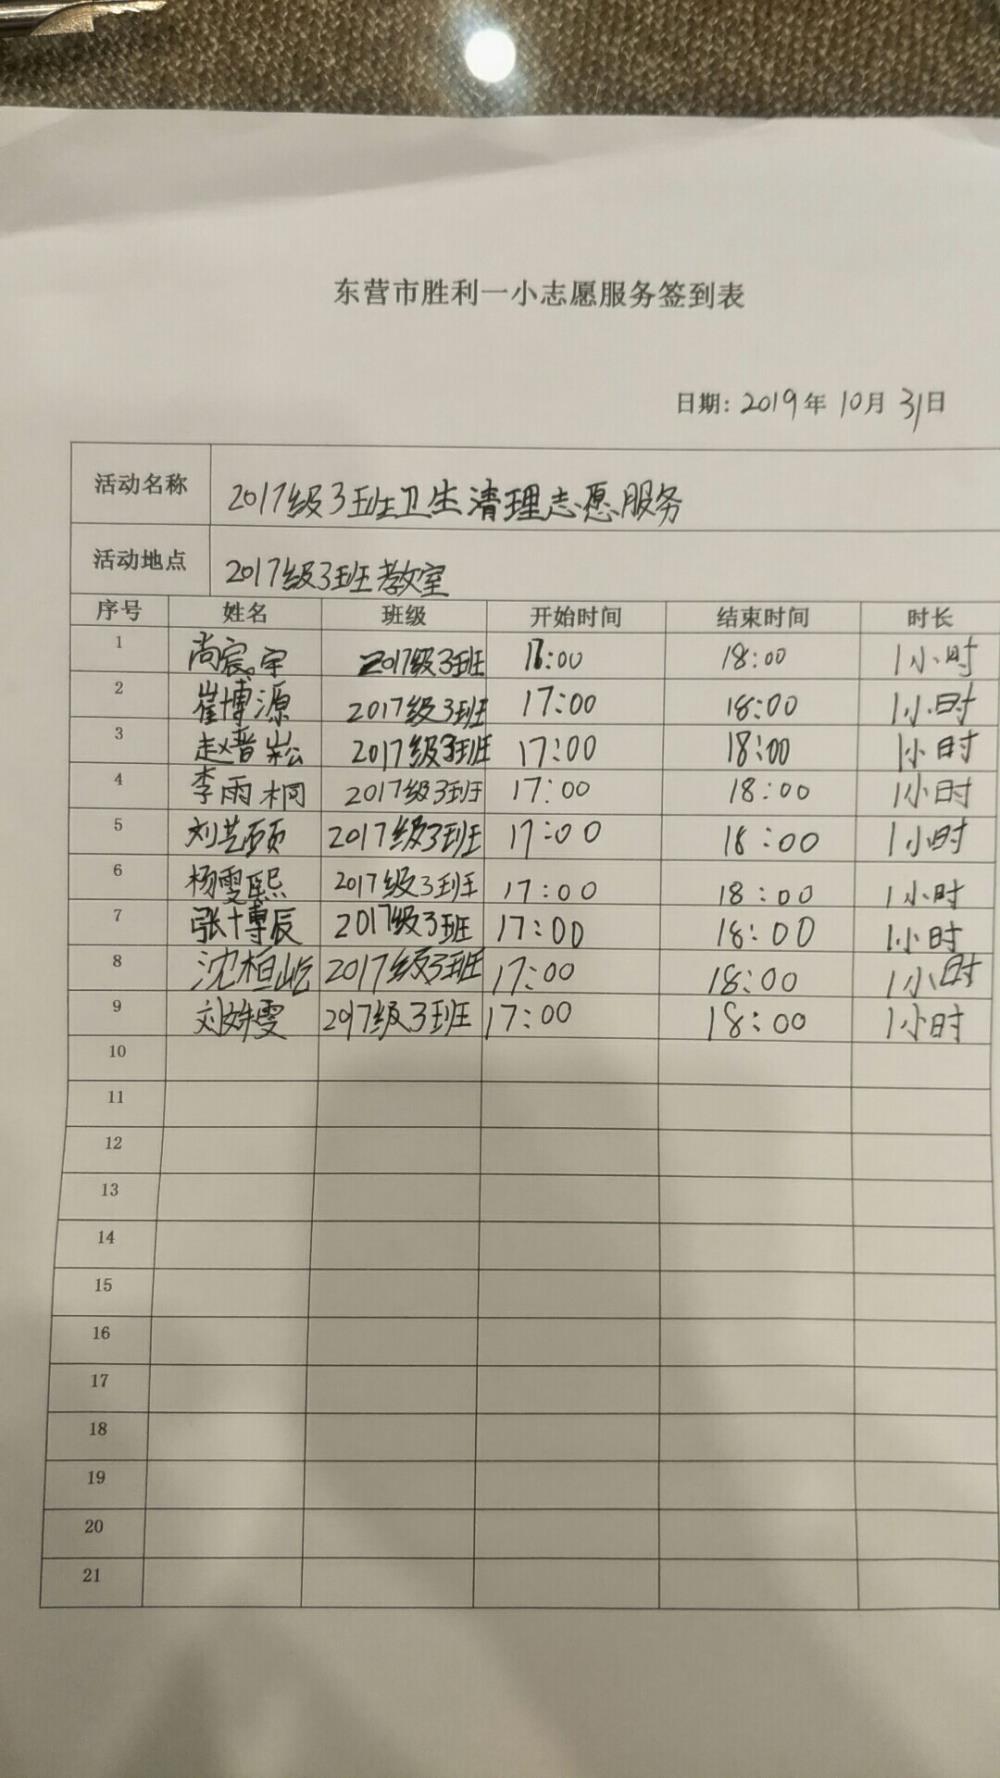 东营市胜利一小志愿服务签到表
日期: 2019年 10月 31日
活动名称 2017级3班卫生清理志愿服务
活动地点 2017级3班教室
序号 姓名 班级 开始时间 结束时间 时长
1 尚宸宇 2017级3班 :00 18:00 1小时
2 崔博源 2017级3班 17:00 18:00 1小时
3 赵晋崧 2017级3班 17:00 18:00 1小时
4 李雨桐 2017级3班 17:00 18:00 1小时
5 刘芸硕 2017级3班 17:00 18:00 1小时
6 杨雯熙 2017级3班 17:00 18:00 1小时
7 张博辰 2017级3班 17:00 18:00 1小时
8 沈桓屹 2017级3班 17:00 18:00 1小时
9 刘姝雯 2017级3班 17:00 18:00 1小时
10
11
12
13
14
15
16
17
18
19
20
21